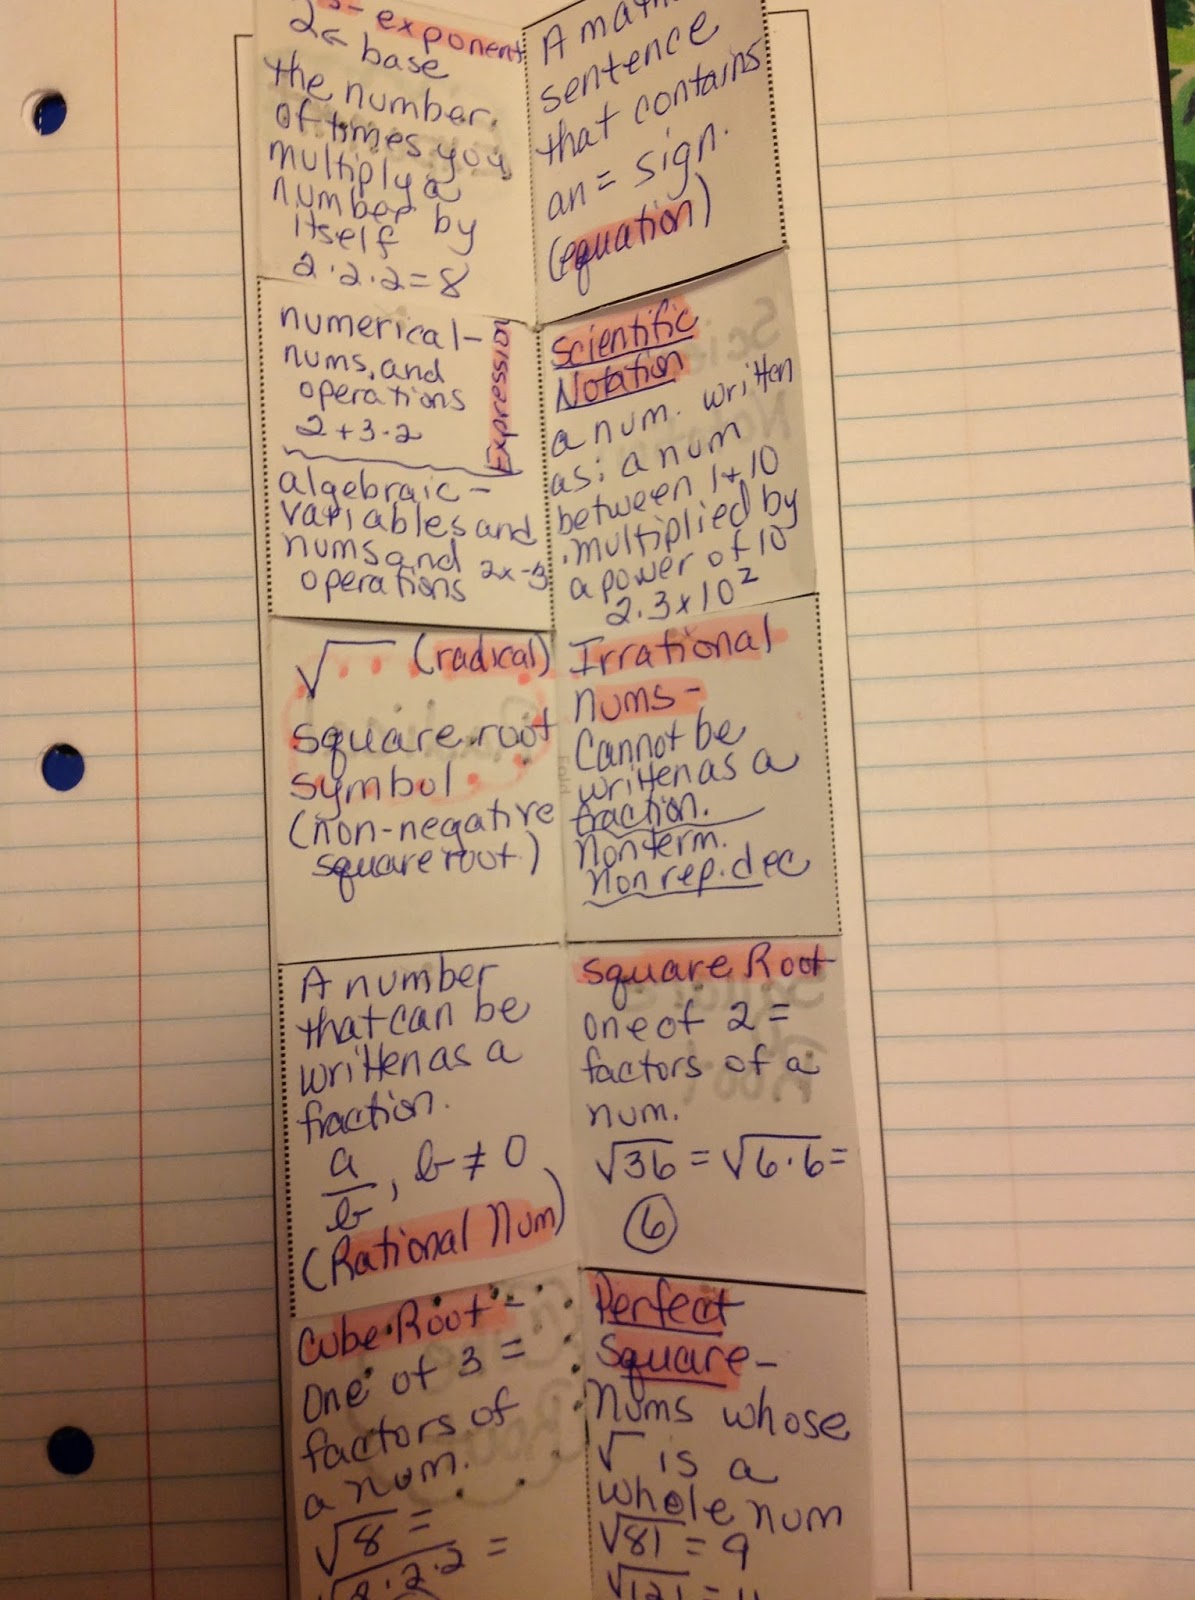 3- exponent
2← base
the number
of times you
multiply a
number by
itself
2·2·2=8
A math
sentence
that contains
an = sign.
(equation)
numerical-
nums. and
operations
2+3·2
Expression
algebraic-
variables and
nums and
operations 2x-3
Scientific
Notation
a num. written
as: a num
between 1+10
multiplied by
a power of 10
2.3x10²
√ (radical)
square root
symbol
(non-negative
square root)
Irrational
nums-
Cannot be
written as a
fraction.
Nonterm.
Non rep. dec
A number
that can be
written as a
fraction.
a/b, b≠0
(Rational Num)
Square Root
one of 2 =
factors of a
num.
√36 = √6·6 =
6
Cube Root-
One of 3 =
factors of
a num.
√8 =
√2·2·2 =
Perfect
Square-
Nums whose
√ is a
whole num
√81 = 9
√121 = 11